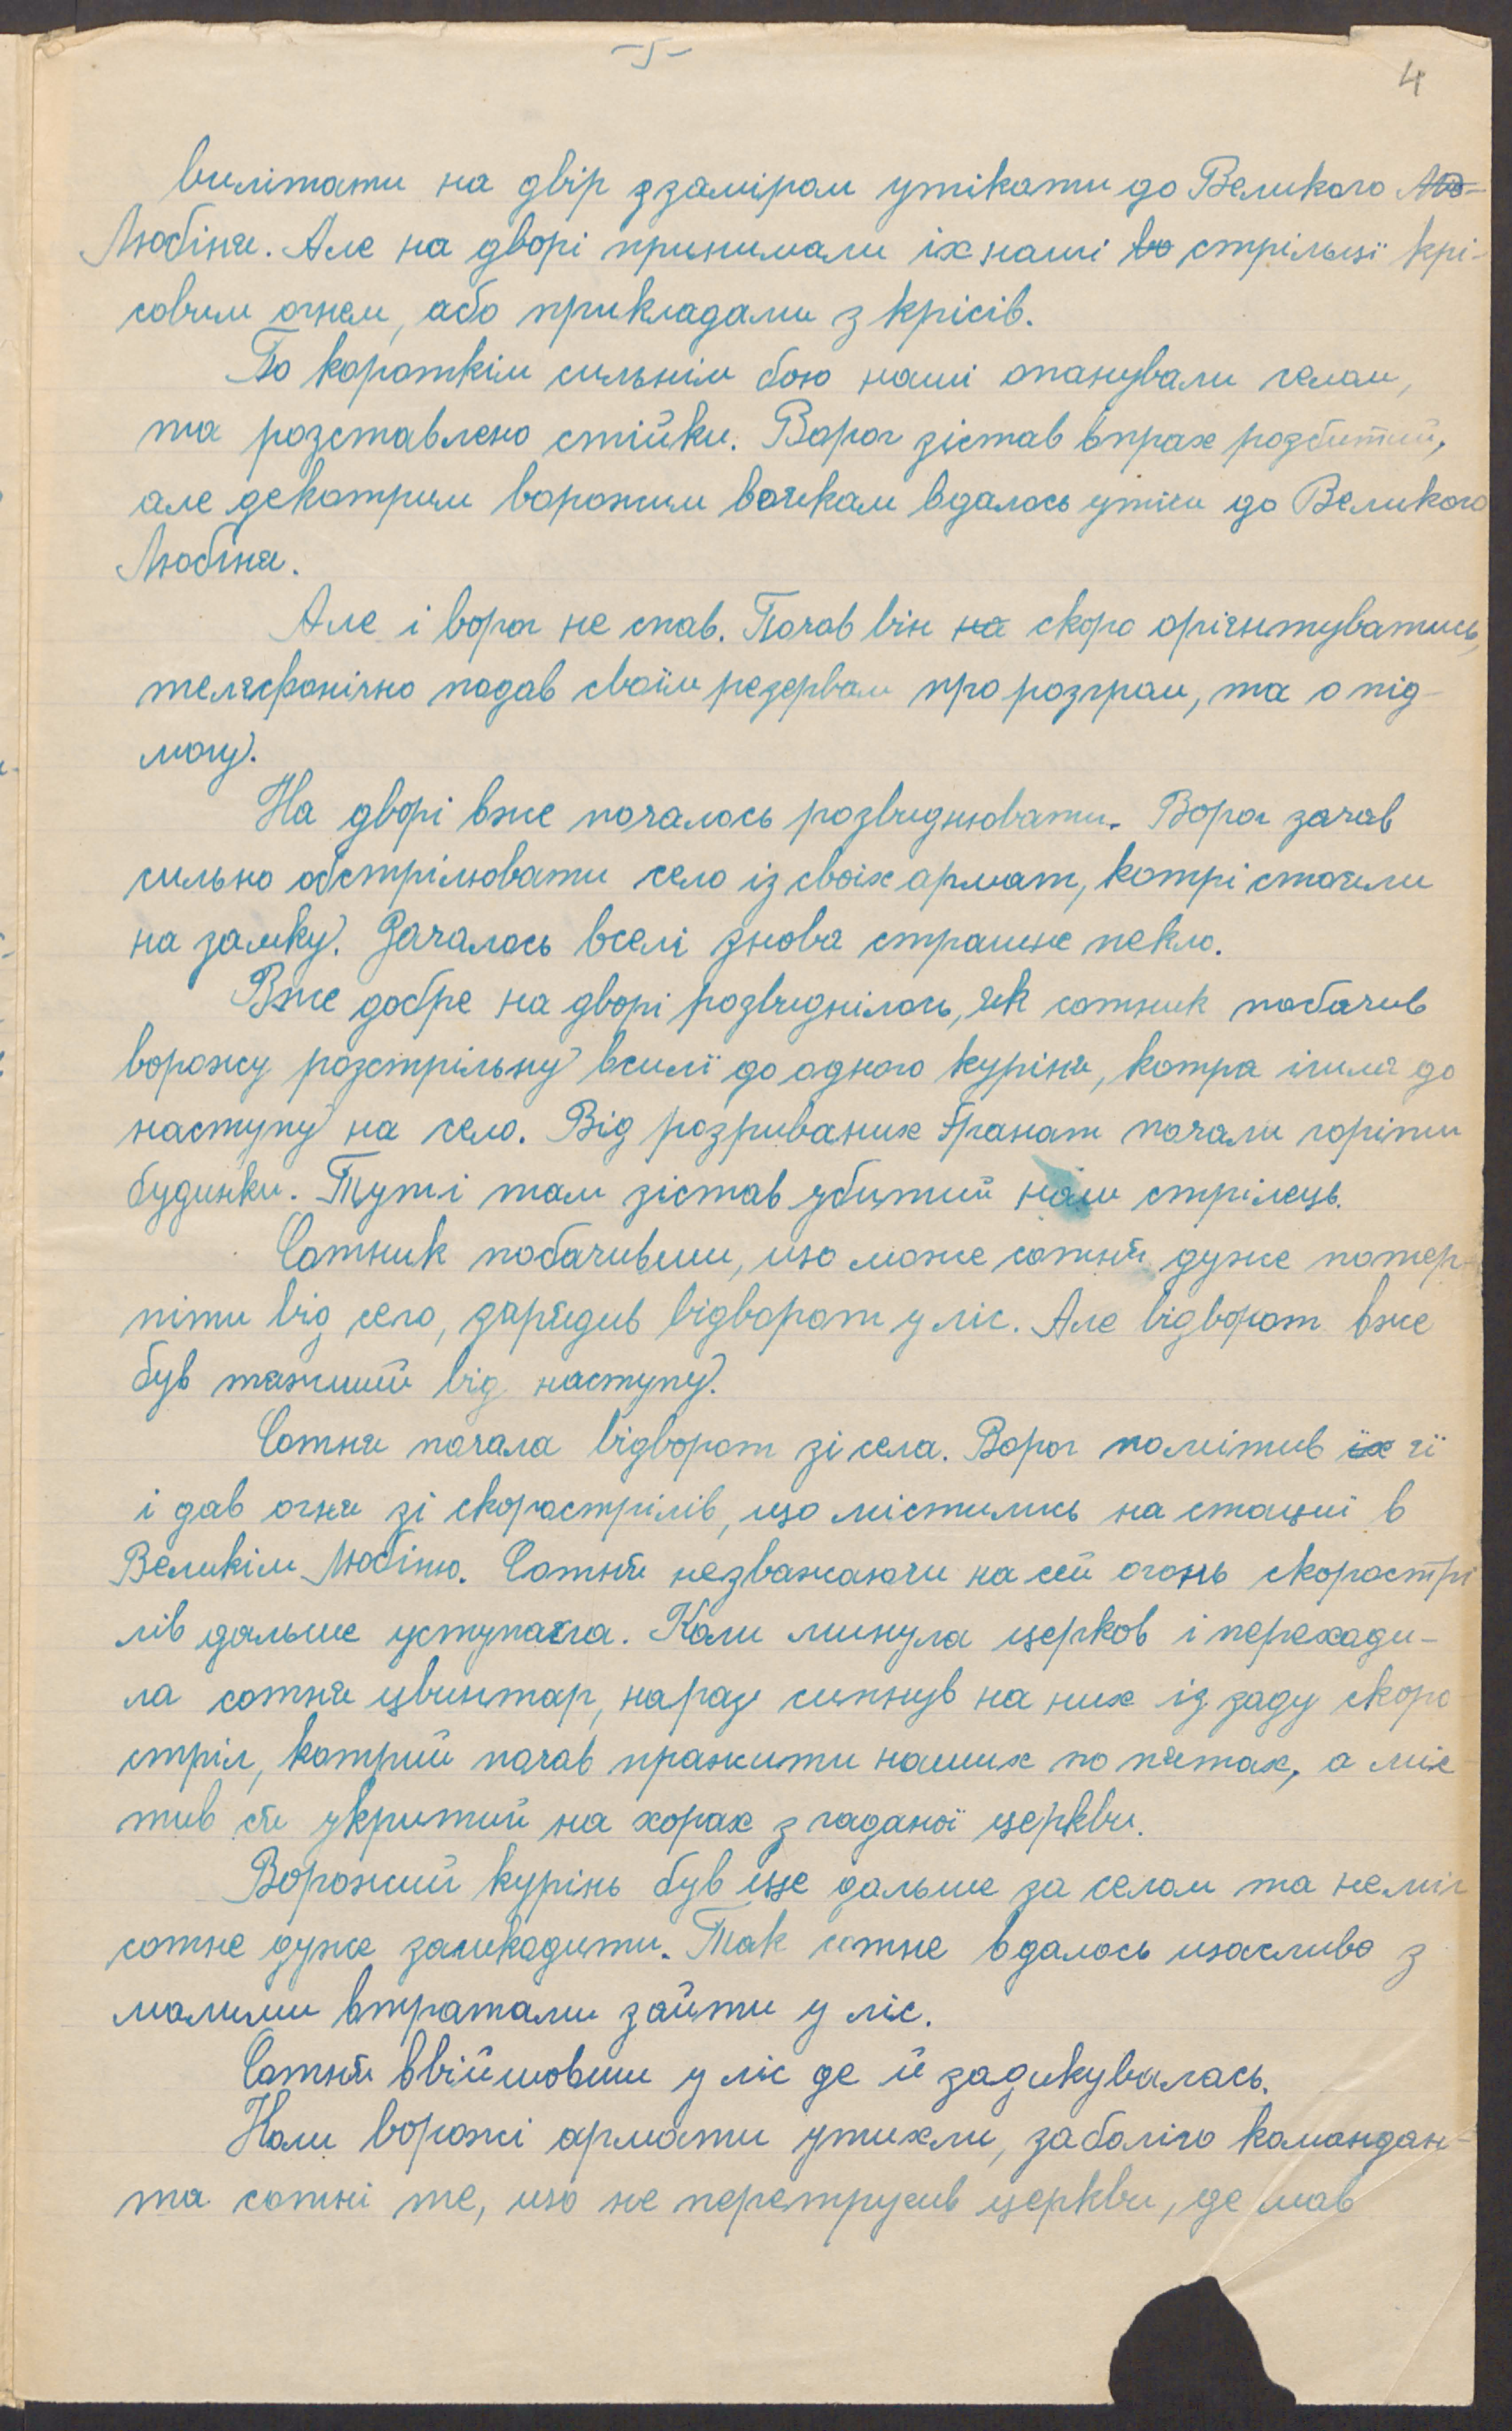 -5-
4
вилітати на двір з заміром утікати до Великого Лю-
Любіня. Але на дворі принимали їх наші во стрільці крі-
совим огнем, або прикладами з крісів.
По короткім сильнім бою наші опанували селом,
та розставлено стійки. Ворог зістав впрах розбитий,
але декотрим ворожим воякам вдалось утічи до Великого
Любіня.
Але і ворог не спав. Почав він на скоро орієнтуватись,
телєфонічно подав своїм резервам про розгром, та о під-
могу.
На дворі вже почалось розвиднювати. Ворог зачав
сильно обстрілювати село із своїх армат, котрі стояли
на замку. Зачалось вселі знова страшне пекло.
Вже добре на дворі розвиднілось, як сотник побачив
ворожу розстрільну всилі до одного куріня, котра ішла до
наступу на село. Від розриваних ґранат почали горіти
будинки. Тут і там зістав убитий наш стрілець.
Сотник побачивши, що може сотня дуже потер-
піти від сего, зарядив відворот у ліс. Але відворот вже
був тяжший від наступу.
Сотня почала відворот зі села. Ворог помітив їх її
і дав огня зі скорострілів, що містились на стації в
Великім Любіню. Сотня незважаючи на сей огонь скорострі
лів дальше уступала. Коли минула церков і переходи-
ла сотня цвинтар, нараз сипнув на них із заду скоро
стріл, котрий почав пражити наших по пятах, а міс
тив ся укритий на хорах згаданої церкви.
Ворожий курінь був ще дальше за селом та неміг
сотне дуже зашкодити. Так сотне вдалось щасливо з
малими втратами зайти у ліс.
Сотня ввійшовши у ліс де й задикувалась.
Коли ворожі армати утихли, заболіло командан-
та сотні те, що не перетрусив церкви, де мав